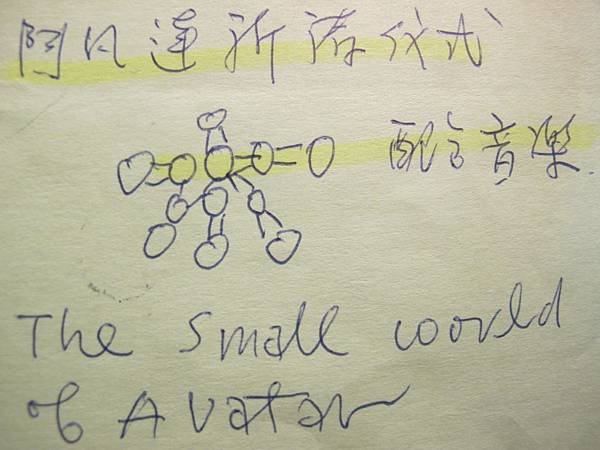 阿凡達祈禱儀式
配合音樂
The small world
of Avatar